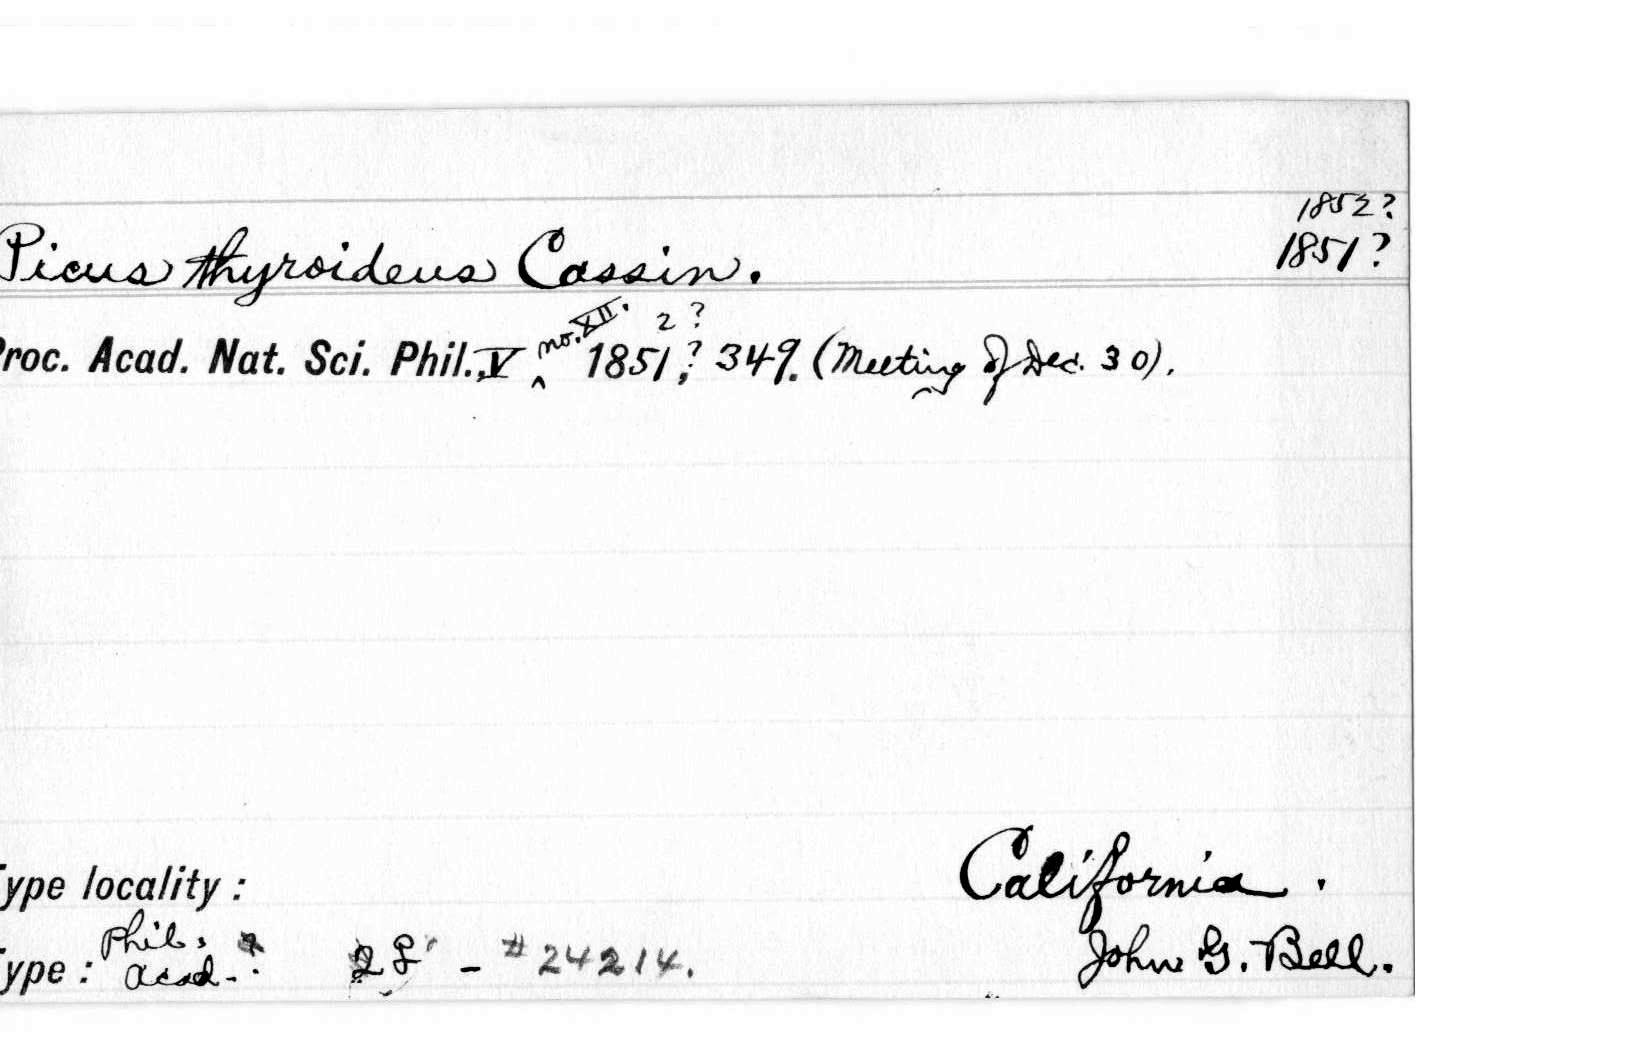 1852?
Picus thyroideus Cassin. 1851?
Proc. Acad. Nat. Sci. Phil., V no. XII. 1851?, 2? 349. (Meeting of Dec. 30).
Type locality: California.
Type: Phil. Acad. - #24214. John G. Bell.